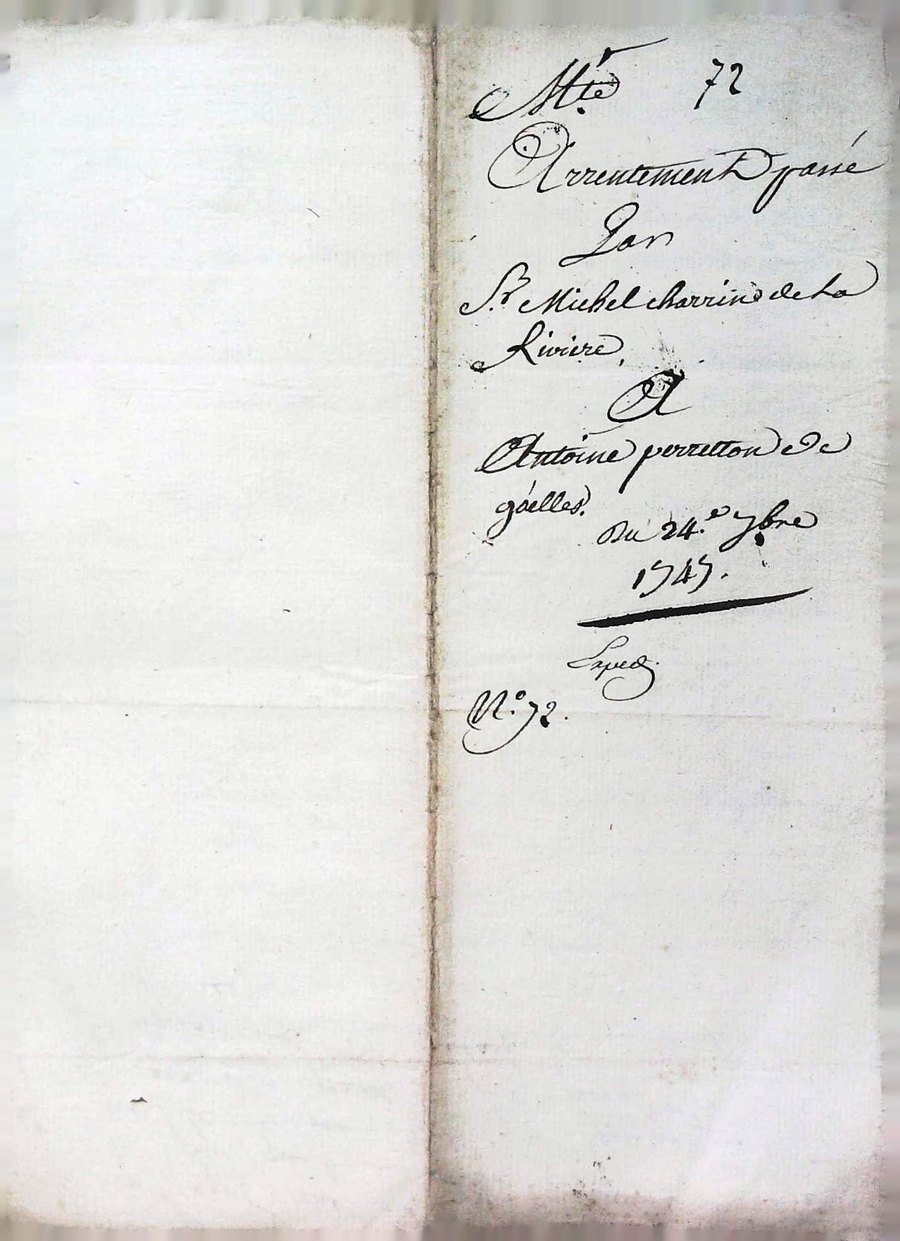 Mte 72
Arrentement passé
Par
Sr. Michel charrin de la
Riviere,
A
Antoine perretton de
goëlles.
Du 24.e 7bre
1747.
Exped.
N.o 72.